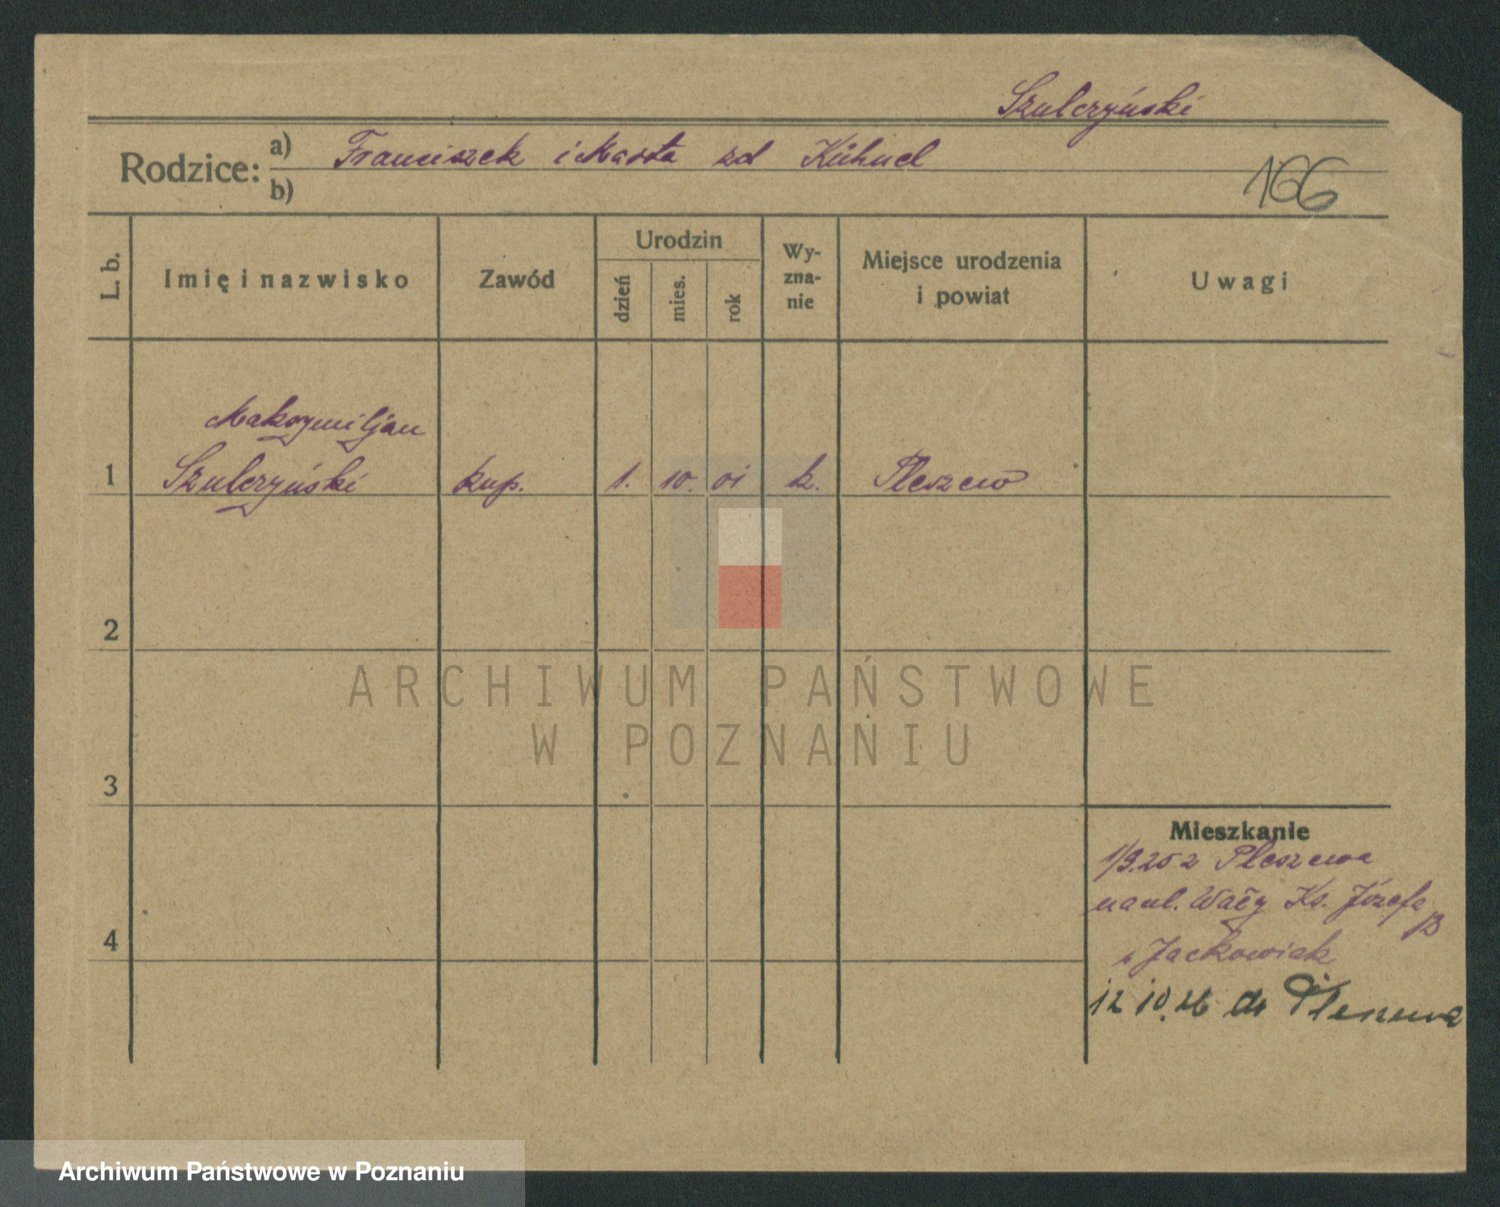 Szulczyński
Rodzice: a) Franciszek i Marta zd Kühnel
b)
166
L. b.
Imię i nazwisko
Zawód
Urodzin
dzień
mies.
rok
Wy-
zna-
nie
Miejsce urodzenia
i powiat
Uwagi
Maksymiljan
1 Szulczyński kup. 1. 10. 01 k. Pleszew
2
3
4
Mieszkanie
1/9.25 z Pleszewa
na ul. Wały Ks. Józefa
Jackowiak
12 10.26 do Pleszewa
ARCHIWUM PAŃSTWOWE
W POZNANIU
Archiwum Państwowe w Poznaniu